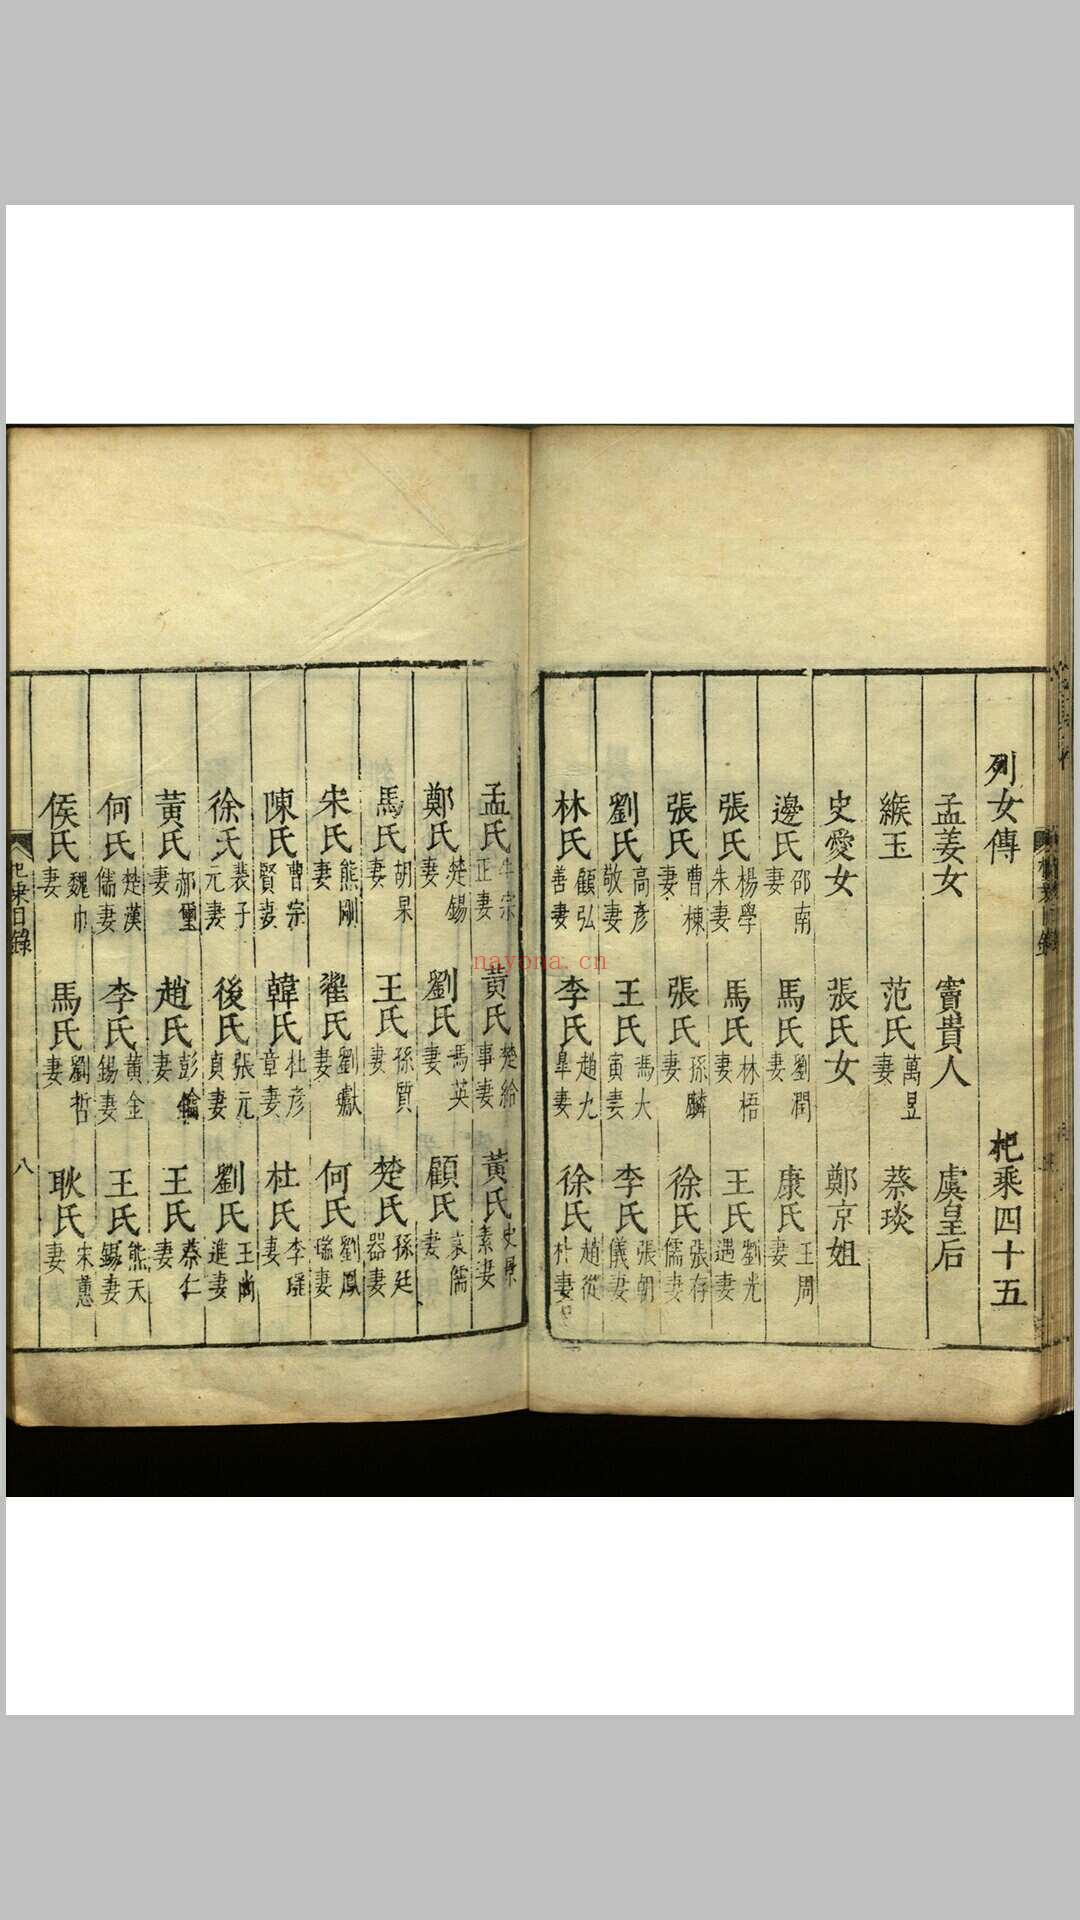 列女傳 杞乘四十五
孟姜女 竇貴人 虞皇后
緱玉 范氏萬昱妻 蔡琰
史愛女 張氏女 鄭京姐
邊氏邵南妻 馬氏劉潤妻 康氏王周妻
張氏楊學朱妻 馬氏林梧妻 王氏劉光遇妻
張氏曹棟妻 張氏孫麟妻 徐氏張存儒妻
劉氏高彥敬妻 王氏馮大寅妻 李氏張朝儀妻
林氏顧弘善妻 李氏趙九皐妻 徐氏趙從杜妻
孟氏牛宗正妻 黃氏楚給事妻 黃氏史景素妻
鄭氏楚錫妻 劉氏馮英妻 顧氏袁儒妻
馬氏胡杲妻 王氏孫質妻 楚氏孫廷器妻
宋氏熊剛妻 翟氏劉獻妻 何氏劉鳳瑞妻
陳氏曹宗賢妻 韓氏杜彥章妻 杜氏李瑶妻
徐氏裴子元妻 後氏張元貞妻 劉氏王尚進妻
黃氏郝璽妻 趙氏彭鑰妻 王氏蔡仁妻
何氏楚漢儒妻 李氏黃金錫妻 王氏熊天錫妻
侯氏魏巾妻 馬氏劉哲妻 耿氏宋蕙妻
杞乘目錄 八
nayona.cn